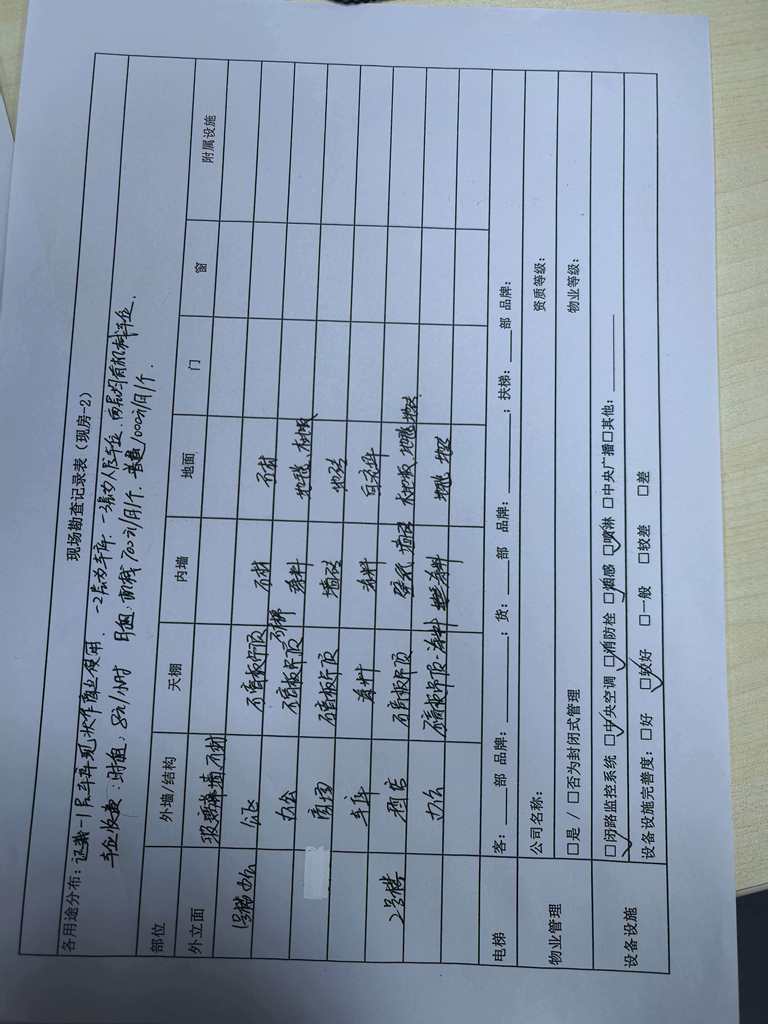 现场勘查记录表（现房-2）
各用途分布：证载-1层车库现状作商业使用。-2层为车库。-3层为人防车位，两层均有机械车位。
车位收费：时租：8元/小时 月租：机械700元/月/个。普通1000元/月/个。
部位 外墙/结构 天棚 内墙 地面 门 窗 附属设施
外立面 玻璃幕墙，石材
1号楼办公 公区 石膏板吊顶 石材 石材
办公 石膏板吊顶 涂料 地毯、木地板
商场 石膏板吊顶 墙砖 地砖
车库 涂料 涂料
2号楼 酒店 石膏板吊顶 壁纸 墙砖 木地板、地毯、地砖
办公 石膏板吊顶、涂料 涂料 地毯 地砖
电梯 客：____部 品牌：________；货：____部 品牌：________；扶梯：____部 品牌：
物业管理 公司名称： 资质等级：
□是 / □否为封闭式管理 物业等级：
设备设施 □闭路监控系统 □中央空调 □消防栓 □烟感 □喷淋 □中央广播□其他：________
设备设施完善度：□好 □较好 □一般 □较差 □差